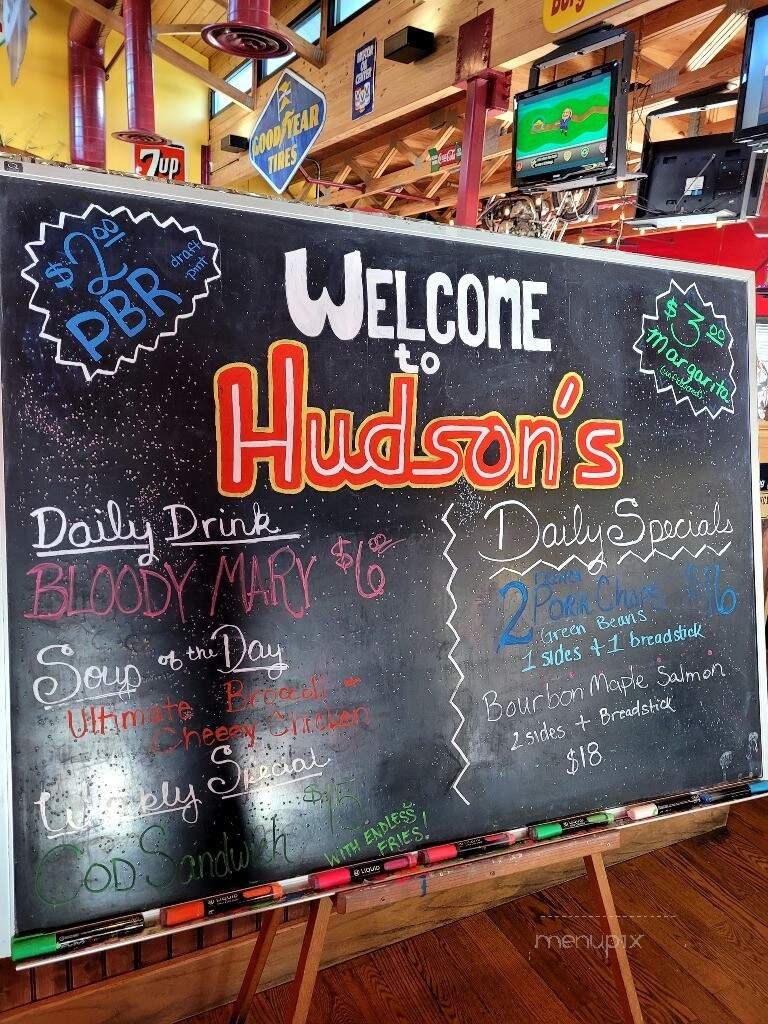 GOODYEAR
TIRES
7up
MOTOR
OIL
CENTER
Coca-Cola
$2.00
PBR
draft
pint
WELCOME
to
Hudson's
$3.00
Margarita
Daily Drink
BLOODY MARY $6.00
Soup of the Day
Ultimate Broccoli +
Cheesy Chicken
Weekly Special
$15
COD Sandwich
WITH ENDLESS
FRIES!
Daily Specials
2 Pork Chops $16
Green Beans
1 sides + 1 breadstick
Bourbon Maple Salmon
2 sides + Breadstick
$18
LIQUID
LIQUID
menupix